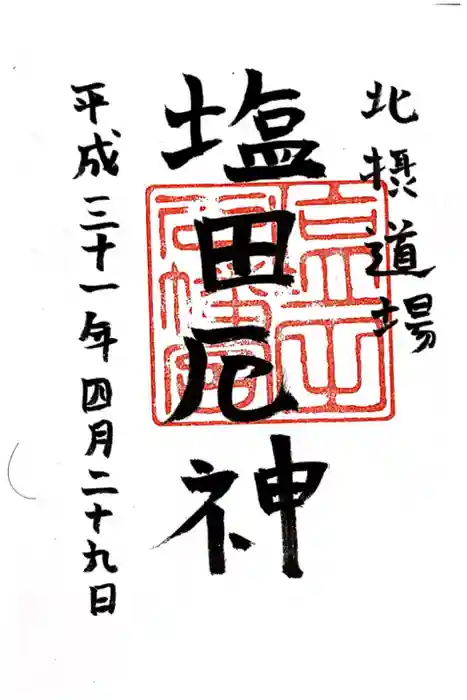 北摂道場
塩田厄神
平成三十一年四月二十九日